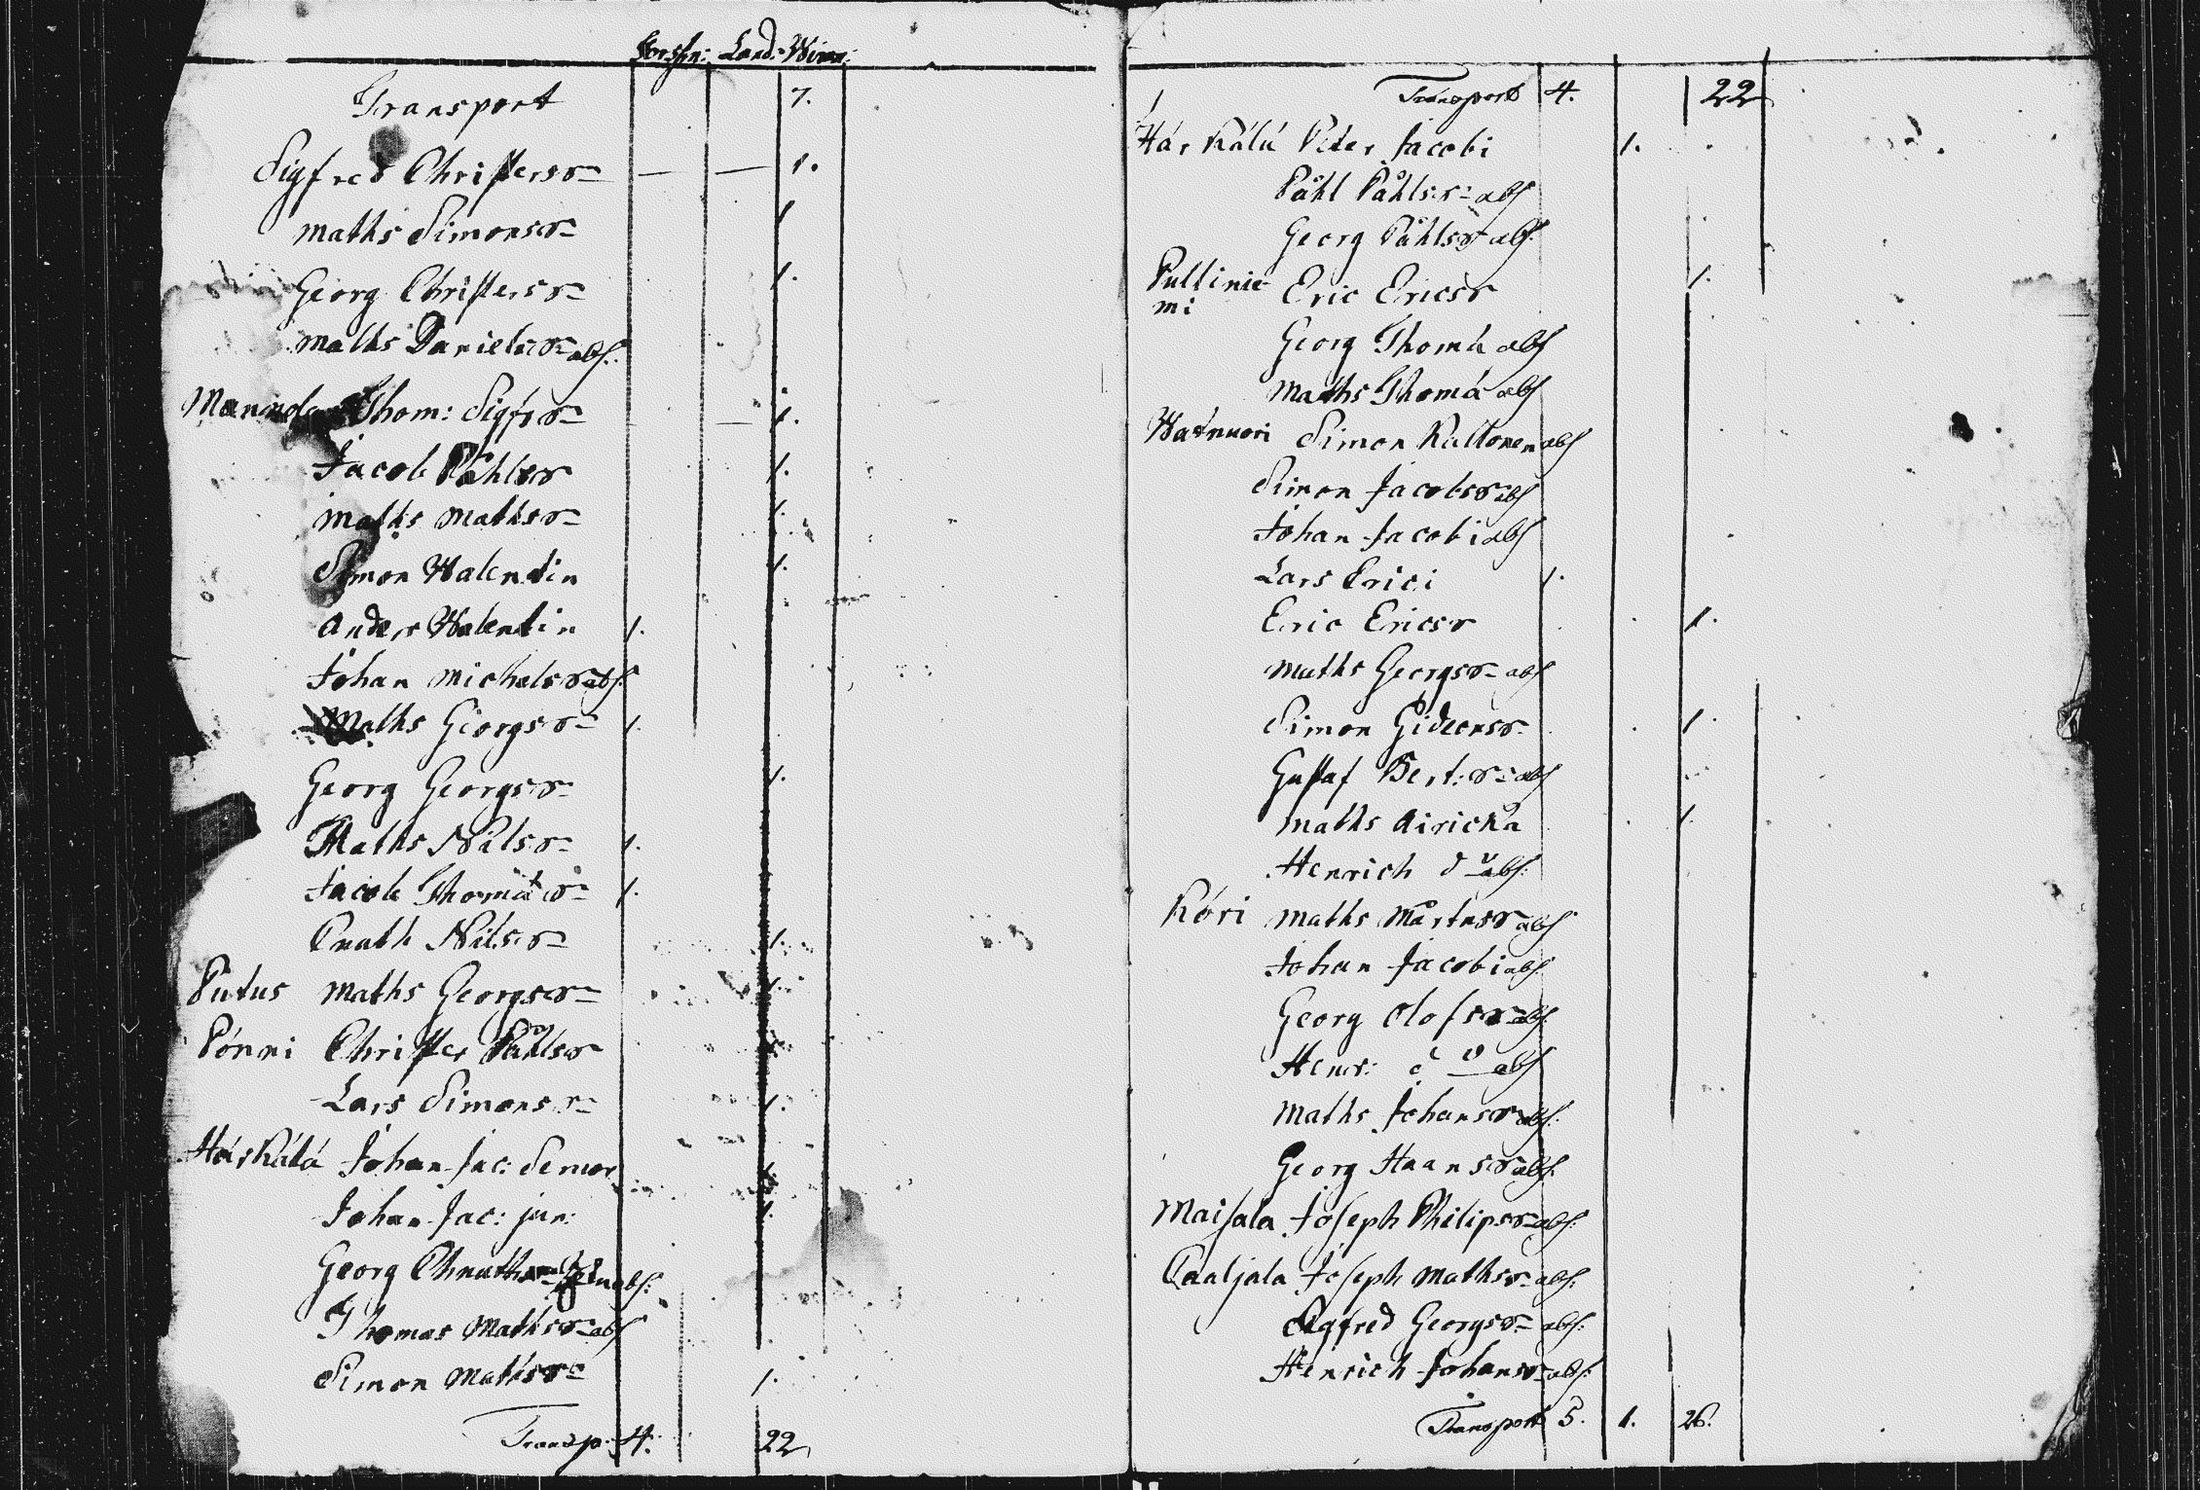 Land: Winn:
Transport 7.
Sigfred Christerss 1.
Maths Simonss 1
Georg Christerss 1.
Maths Danielss abs:
Thom: Sigfrs 1.
Jacob Påhlss 1.
Maths Mathss 1.
Simon Walentin 1.
Anders Walentin 1.
Johan Michelss abs:
Maths Georgss 1.
Georg Georgss 1.
Maths Nilss 1.
Jacob Thomæ 1.
Cnuth Nilss 1.
Putus Maths Georgss 1.
Pönni Christer Påhlss 1.
Lars Simonss 1.
Härkälä Johan Jac: Senior 1.
Johan Jac: jun: 1.
Georg Chnuths abs:
Thomas Mathss abs
Simon Mathss 1.
Transp. 4. 22
Transport 4. 22
Härkälä Peter Jacobi 1.
Påhl Påhlss abs
Georg Påhlss abs:
Pullinie
mi Eric Ericss 1.
Georg Thomæ abs
Maths Thomæ abs
Watnuori Simon Kultonen abs
Simon Jacobss abs
Johan Jacobi abs
Lars Erici 1.
Eric Ericss 1.
Maths Georgss abs
Simon Gideonss 1.
Gustaf Bert: s: abs
Maths Airicka 1.
Henrich do abs:
Köri Maths Mårtnss abs
Johan Jacobi abs
Georg Olofss abs
Henr: do abs
Maths Johanss abs:
Georg Haanss abs:
Maisala Joseph Philipss abs:
Caaljala Joseph Mathss abs:
Sigfred Georgss abs:
Henrich Johanss abs:
Transport 5. 1. 26.